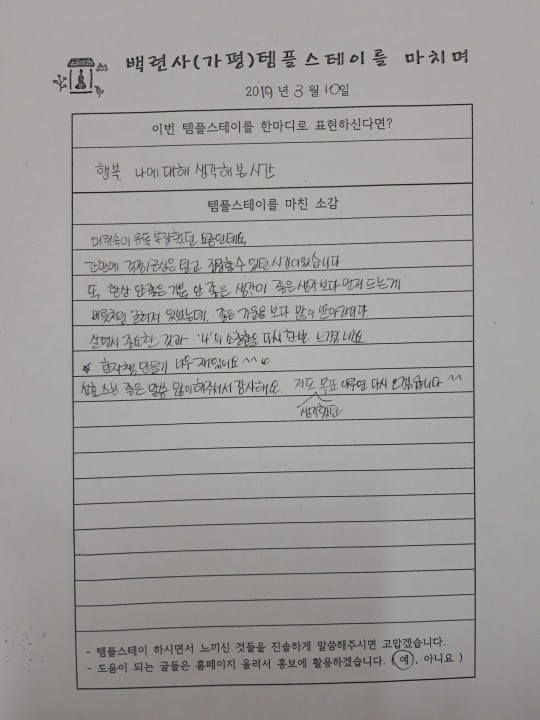 백련사(가평)템플스테이를 마치며
2019년 3월 10일
이번 템플스테이를 한마디로 표현하신다면?
행복, 나에 대해 생각해 본 시간
템플스테이를 마친 소감
머릿속이 유독 복잡했던 요즘인데요,
간만에 걱정근심은 덜고 집중할 수 있던 시간이었습니다
또, 항상 안 좋은 기분, 안 좋은 생각이 좋은 생각보다 먼저 드는게
버릇처럼 되어 있었는데, 좋은 기운을 보다 많이 받아갑니다.
살면서 중요한 것과 '나'의 소중함을 다시 한번 느끼네요
* 합장주 만들기 너무 재밌네요 ^^
스님 좋은 말씀 많이 해주셔서 감사해요. 저도 목표 이루면 다시 오겠습니다 ^^
생각했던
- 템플스테이 하시면서 느끼신 것들을 진솔하게 말씀해주시면 고맙겠습니다.
- 도움이 되는 글들은 홈페이지 올려서 홍보에 활용하겠습니다. ( 예, 아니요 )